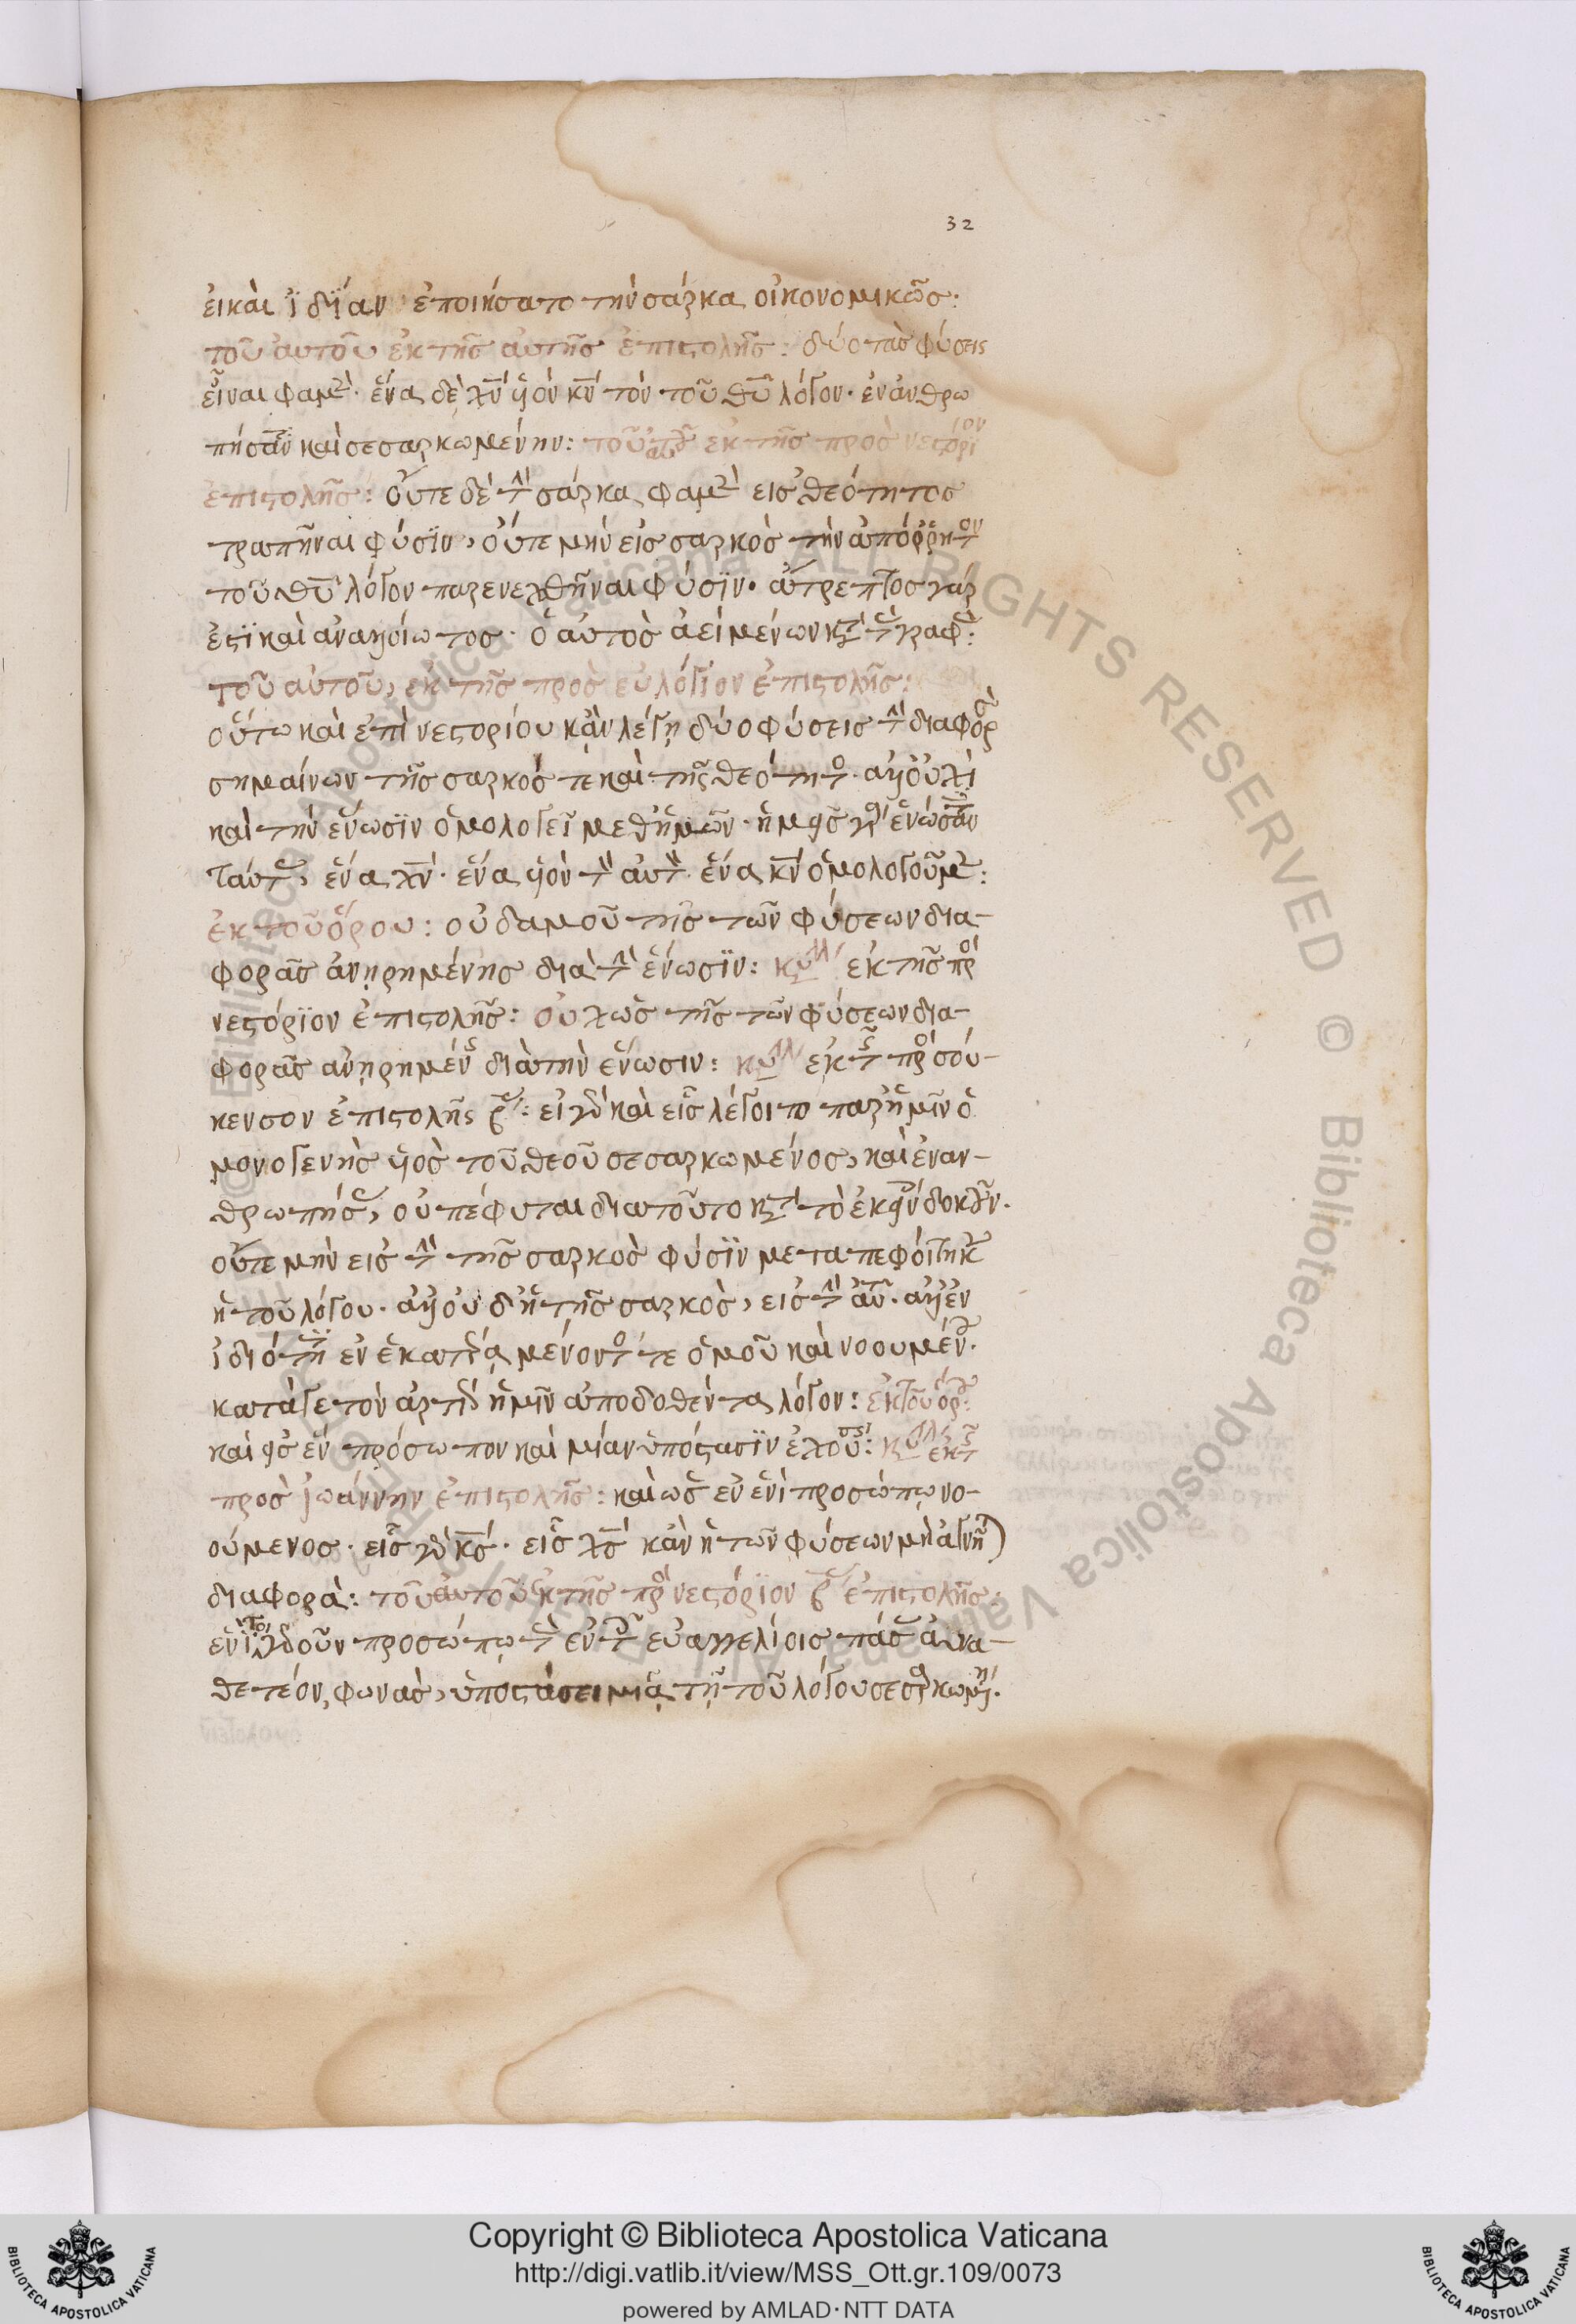 32
εἰ καὶ ἰδίαν ἐποιήσατο τὴν σάρκα οἰκονομικῶς:
τοῦ αὐτοῦ ἐκ τῆς αὐτῆς ἐπιστολῆς: δύο τὰς φύσεις
εἶναι φαμὲν· ἕνα δὲ χν υἱὸν κν τὸν τοῦ θυ λόγον· ἐνανθρω
πήσαντα καὶ σεσαρκωμένην: τοῦ αὐτοῦ ἐκ τῆς πρὸς νεστόριον
ἐπιστολῆς: οὔτε δὲ τὴν σάρκα φαμὲν εἰς θεότητος
τραπῆναι φύσϊν, οὔτε μὴν εἰς σαρκὸς τὴν ἀπόρρητον
τοῦ θυ λόγου παρενεχθῆναι φύσϊν· ἄτρεπτος γάρ
ἐστϊ καὶ ἀναλλοίωτος· ὁ αὐτὸς ἀεὶ μένων κατὰ τὰς γραφὰς:
τοῦ αὐτοῦ, ἐκ τῆς πρὸς εὐλόγιον ἐπιστολῆς:
οὕτω καὶ ἐπὶ νεστορίου κἂν λέγῃ δύο φύσεις τὴν διαφορὰν
σημαίνων τῆς σαρκός τε καὶ τῆς θεότητος· ἀλλ' οὐχὶ
καὶ τὴν ἕνωσϊν ὁμολογεῖ μεθ' ἡμῶν· ἡμεῖς γὰρ ἑνώσαντες
ταῦτα, ἕνα χν· ἕνα υἱὸν τὸν αὐτὸν· ἕνα κν ὁμολογοῦμεν:
ἐκ τοῦ ὅρου: οὐδαμοῦ τῆς τῶν φύσεων δια-
φορᾶς ἀνῃρημένης διὰ τὴν ἕνωσϊν: κυρίλλου ἐκ τῆς πρὸς
νεστόριον ἐπιστολῆς: οὐχ ὡς τῆς τῶν φύσεων δια-
φορᾶς ἀνῃρημένης διὰ τὴν ἕνωσιν: κυρίλλου ἐκ τῆς πρὸς σού-
κενσον ἐπιστολῆς β: εἰ γὰρ καὶ εἷς λέγοιτο παρ' ἡμῖν ὁ
μονογενὴς υἱὸς τοῦ θεοῦ σεσαρκωμένος, καὶ ἐναν-
θρωπήσας, οὐ πέφυται διατοῦτο κατὰ τὸ ἐκείνοις δοκοῦν·
οὔτε μὴν εἰς τὴν τῆς σαρκὸς φύσϊν μεταπεφοίτηκεν
ἡ τοῦ λόγου· ἀλλ' οὐδ' ἡ τῆς σαρκὸς, εἰς τὴν αὐτοῦ· ἀλλ' ἐν
ἰδιότητι ἐν ἑκατέρα μένοντός τε ὁμοῦ καὶ νοουμένου·
κατά γε τὸν ἀρτίως ἡμῖν ἀποδοθέντα λόγον: ἐκ τοῦ ὅρου:
καὶ εἰς ἓν πρόσωπον καὶ μίαν ὑπόστασϊν ἐχούσης: κυρίλλου ἐκ τῆς
πρὸς ἰωάννην ἐπιστολῆς: καὶ ὡς ἐν ἑνὶ προσώπῳ νο-
ούμενος· εἷς γὰρ κς· εἷς χς κἂν ἡ τῶν φύσεων μὴ ἀγνοῆται
διαφορὰ: τοῦ αὐτοῦ ἐκ τῆς πρὸς νεστόριον β ἐπιστολῆς:
ἑνὶ τοιγαροῦν προσώπῳ τὰς ἐν τοῖς εὐαγγελίοις πάσας ἀνα-
θετέον, φωνὰς, ὑποστάσει μιᾷ τῇ τοῦ λόγου σεσαρκωμένῃ·
Copyright © Biblioteca Apostolica Vaticana
http://digi.vatlib.it/view/MSS_Ott.gr.109/0073
powered by AMLAD·NTT DATA